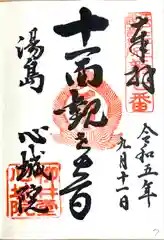 奉拝
令和五年
九月十一日
十一面観世音
湯島
心城院